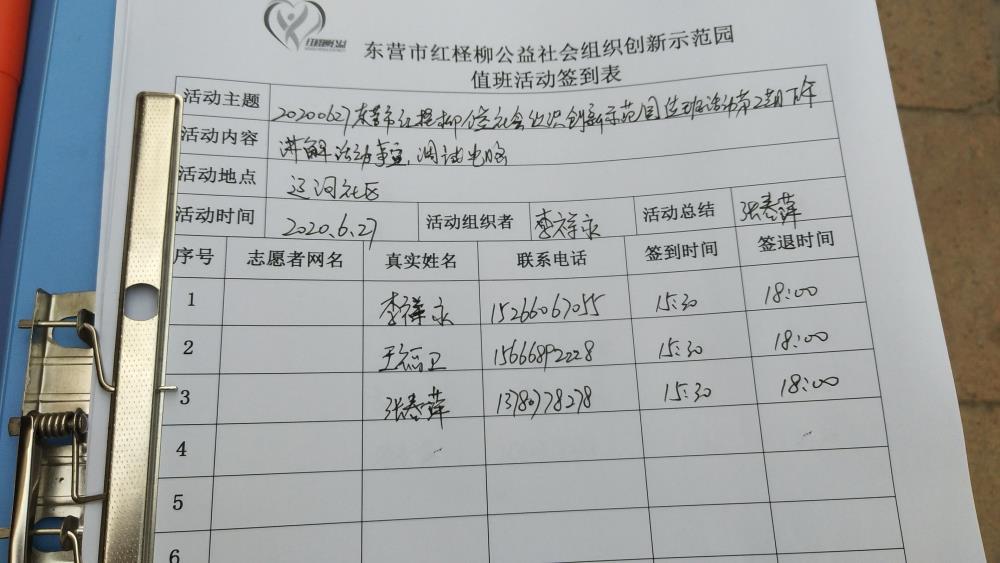 东营市红柽柳公益社会组织创新示范园
值班活动签到表
活动主题 20200627东营市红柽柳公益社会组织创新示范园值班活动第2期下午
活动内容 讲解活动事宜,调试电脑
活动地点 运河社区
活动时间 2020.6.27 活动组织者 李祥永 活动总结 张春萍
序号 志愿者网名 真实姓名 联系电话 签到时间 签退时间
1 李祥永 15266067055 15:30 18:00
2 王 卫 15666892228 15:30 18:00
3 张春萍 13780778278 15:30 18:00
4
5
6